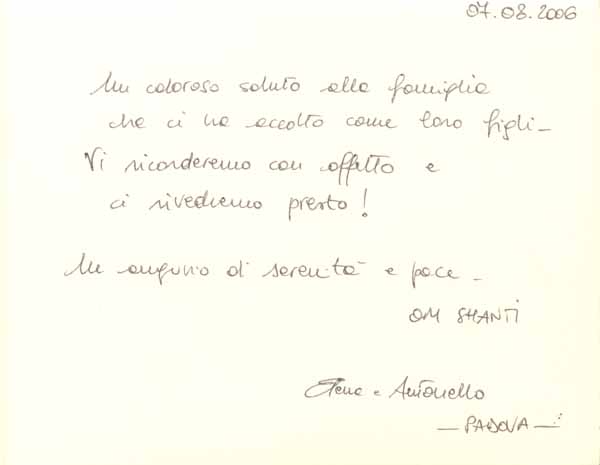 07.08.2006
Un caloroso saluto alla famiglia
che ci ha accolto come loro figli -
Vi ricorderemo con affetto e
ci rivedremo presto!
Un augurio di serenità e pace -
OM SHANTI
Elena e Antonello
- PADOVA -